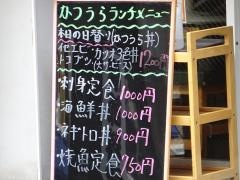 かつうらランチメニュー
本日の日替り(かつうら丼)
イセエビ・カツオ3色丼
トコブシ(大サービス)1200円
・刺身定食1000円
・海鮮丼1000円
・ネギトロ丼900円
・焼魚定食750円